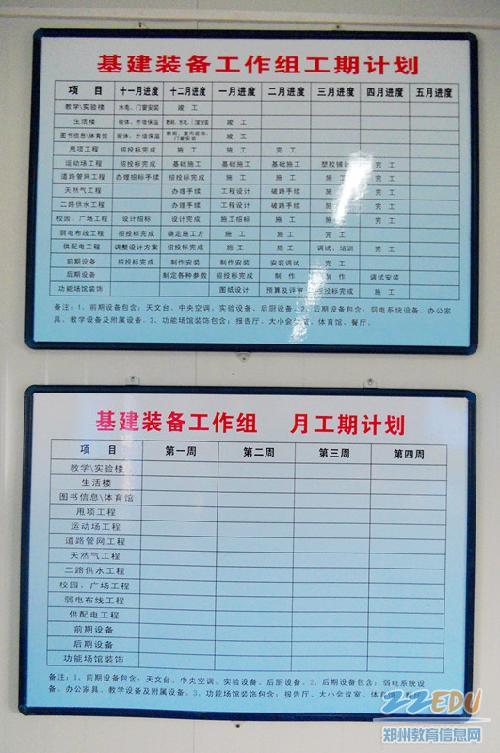 基建装备工作组工期计划
项 目 十一月进度 十二月进度 一月进度 二月进度 三月进度 四月进度 五月进度
教学\实验楼 水电、门窗安装 竣 工
生活楼 竣 工
图书信息\体育馆 竣 工
甩项工程 招投标完成 施 工 施 工 完 工
运动场工程 招投标完成 基础施工 基础施工 基础施工 塑胶铺 完 工
道路管网工程 办理招标手续 招投标完成 施 工 施 工 施 工 完 工
天然气工程 办理手续 工程设计 破路手续 施 工 完 工
二路供水工程 办理手续 工程设计 破路手续 施 工 完 工
校园、广场工程 设计招标 设计完成 施工招标 施 工 施 工 完 工
弱电布线工程 招投标完成 确定施工方 施 工 施 工 施 工 完 工
供配电工程 调整设计方案 招投标完成 施 工 施 工 调试、培训 完 工
前期设备 招投标完成 制作安装 制作安装 安装调试 完 工
后期设备 制定各种参数 招投标完成 制 作 制 作 调试安装
功能场馆装饰 图纸设计 预算及评审 招投标完成 施 工
备注：1、前期设备包含：天文台、中央空调、实验设备、后厨设备。2、后期设备包含：弱电系统设备、办公家
具、教学设备及附属设备。3、功能场馆装饰包含：报告厅、大小会议室、体育馆、餐厅。
基建装备工作组 月工期计划
项 目 第一周 第二周 第三周 第四周
教学\实验楼
生活楼
图书信息\体育馆
甩项工程
运动场工程
道路管网工程
天然气工程
二路供水工程
校园、广场工程
弱电布线工程
供配电工程
前期设备
后期设备
功能场馆装饰
备注：1、前期设备包含：天文台、中央空调、实验设备、后厨设备。2、后期设备包含：弱电系统设
备、办公家具、教学设备及附属设备。3、功能场馆装饰包含：报告厅、大小会议室、体育馆、餐厅
ZZEDU
郑州教育信息网